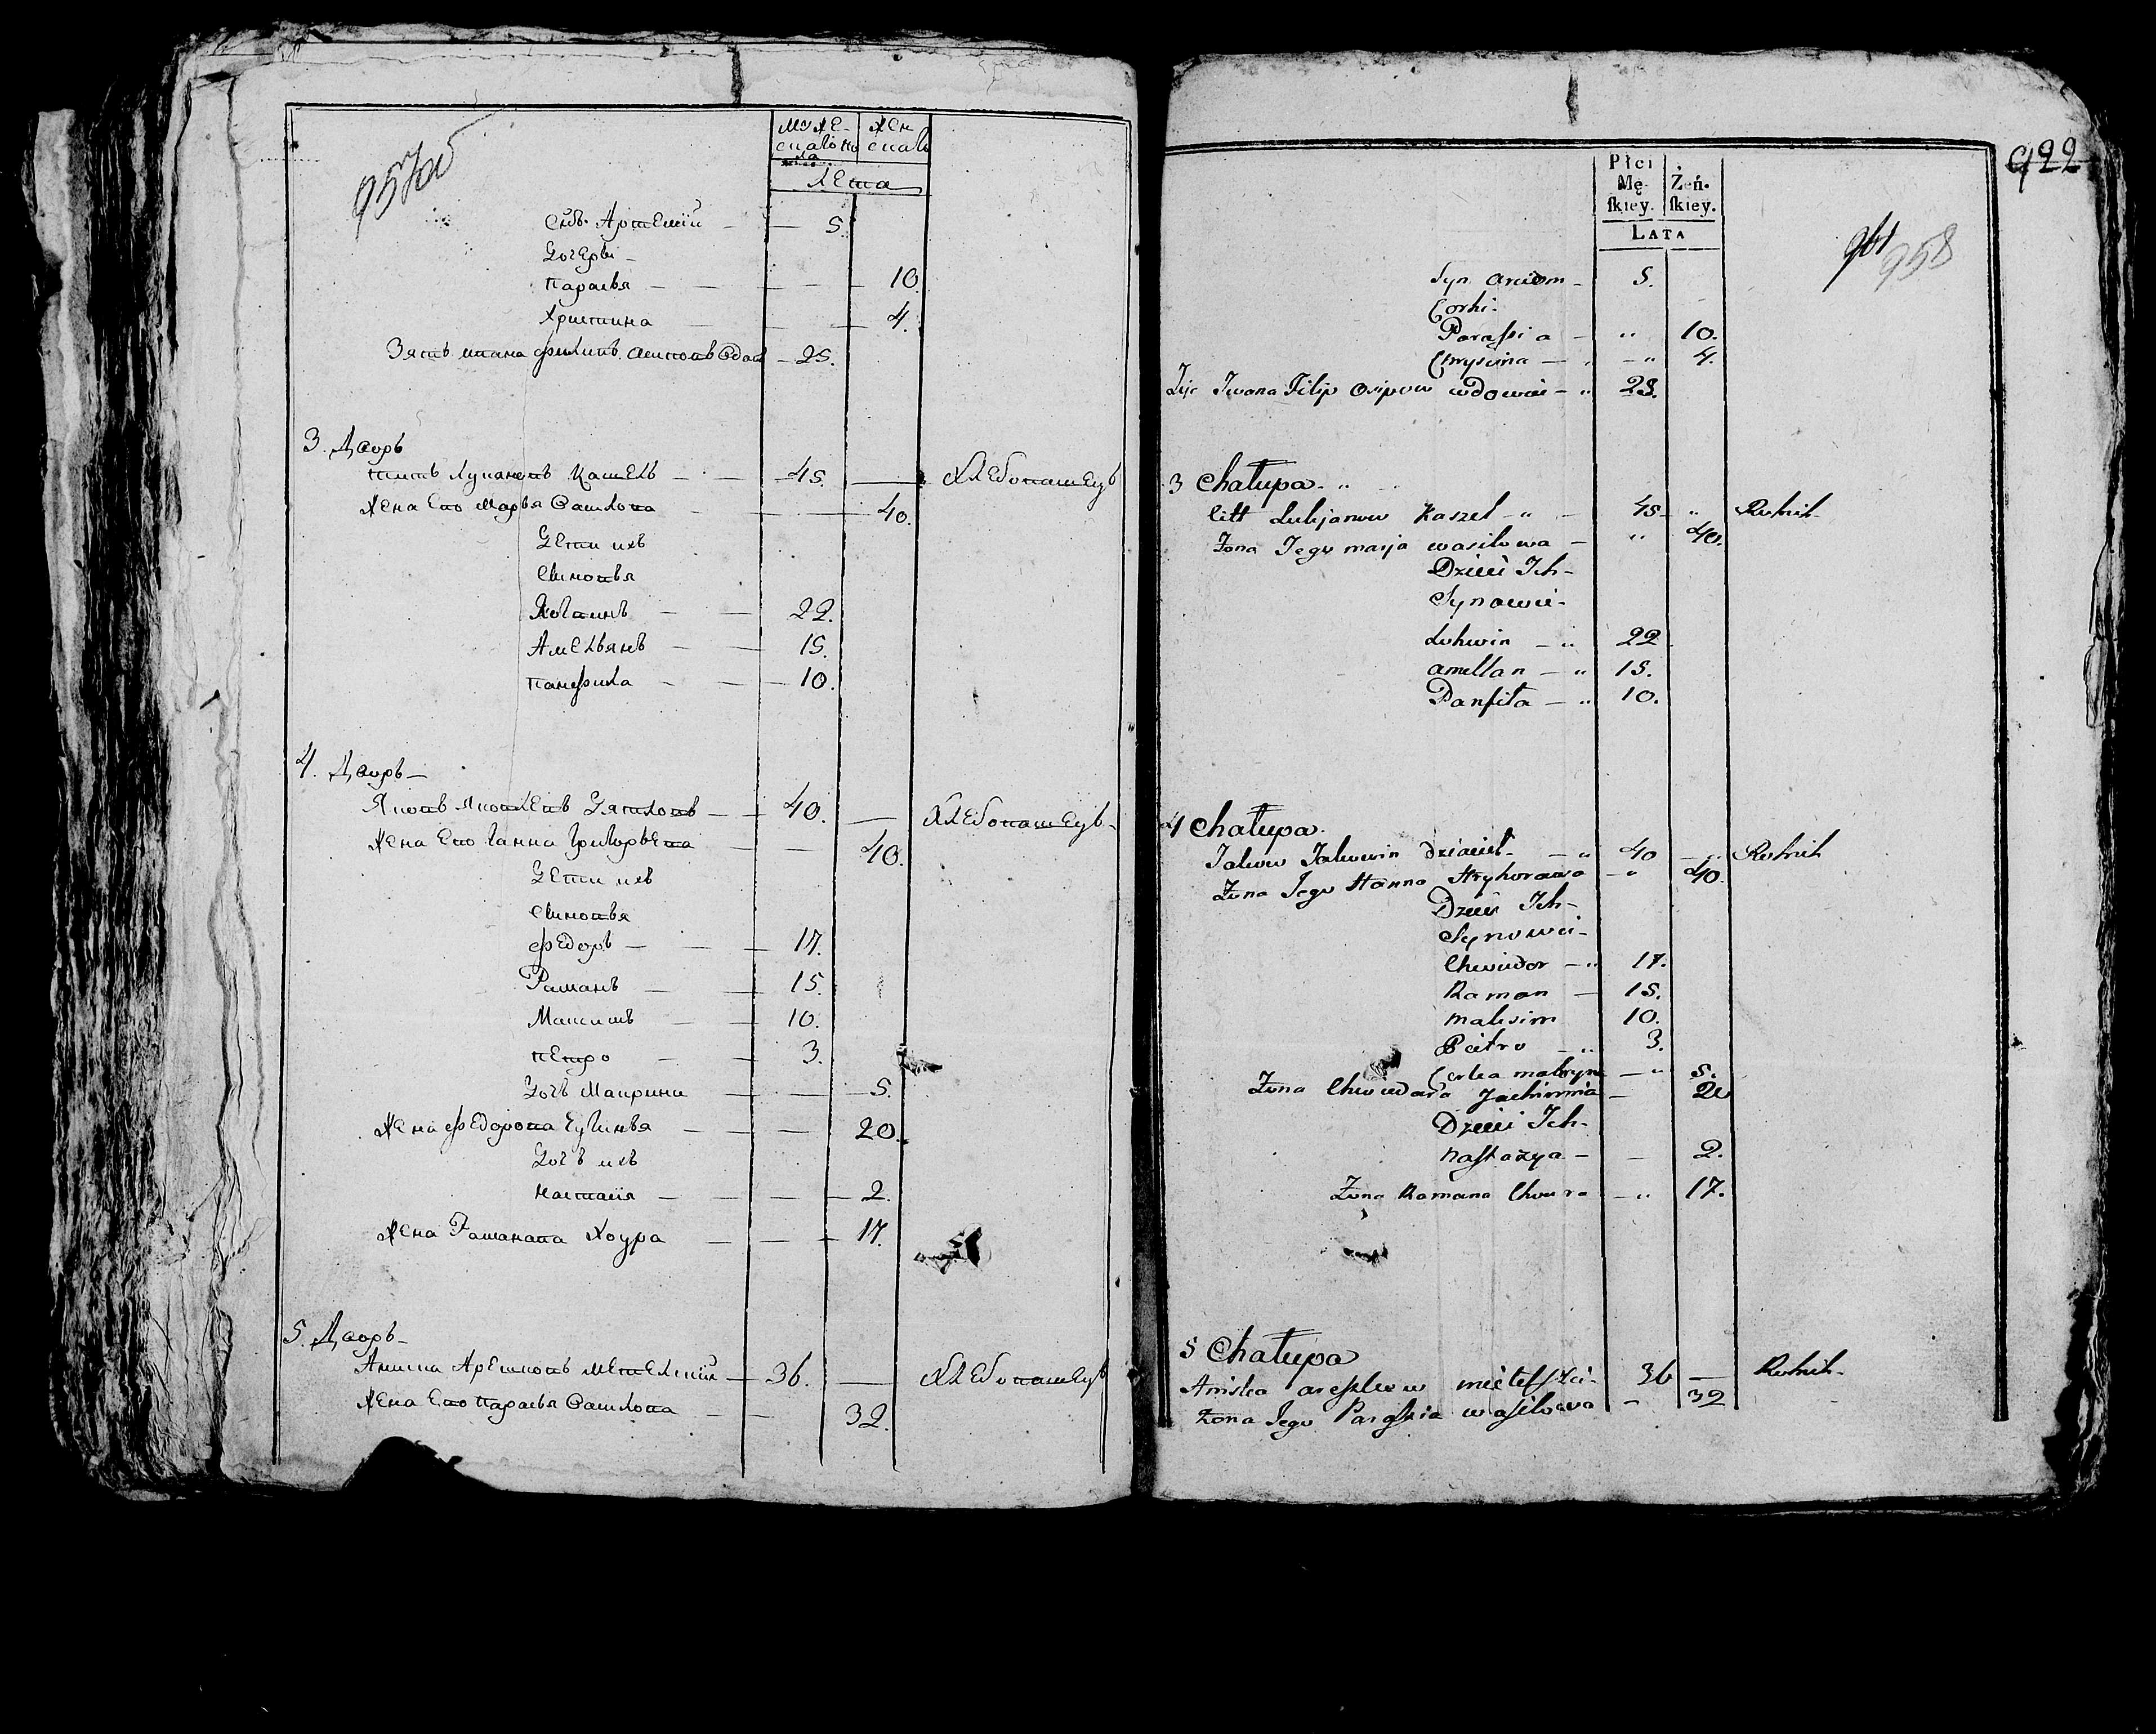 957об
Муже-
скаго по
ла
Жен
скаго
Лета
Снъ. Артемiй — 5.
Дочери —
Парасья — 10.
Христина — 4.
Зять Ивана Филипъ Осиповъ вдовъ — 25.
3. Дворъ
Титъ Лукяновъ Кашель — 45. — Хлебопашецъ
Жена Его Марья Василова — 40.
Дети ихъ
Синовья
Логвинъ — 22.
Амельянъ — 15.
Панфила — 10.
4. Дворъ —
Яковъ Яковлевъ Дятловъ — 40. — Хлебопашецъ —
Жена Его Ганна Григорьева — 40.
Дети ихъ
Синовья
Федоръ — 17.
Раманъ — 15.
Максимъ — 10.
Петро — 3.
Дочъ Макрина — 5.
Жена Федорова Еугинья — 20.
Дочъ ихъ
Настасiя — 2.
Жена Раманава Хоура — 17.
5. Дворъ —
Аниска Арешковъ Метелскiй — 36. — Хлебопашецъ
Жена Его Парасья Василова — 32.
922
961 958
Płci
Mę-
ſkiey.
Żeń-
ſkiey.
LATA
Syn Arciom — 5.
Corki —
Paraſsia — " 10.
Chryscina — " 4.
Iwana Filip Osipow wdowiec — " 25.
3 Chałupa. "
Citt Lukjanow Kaszel — " — 45 — " Rolnik —
Żona Jego Marja Wasilowa — " 40.
Dzieci Ich —
Synowie —
Lohwin — " 22
Amellan — " 15.
Panfiła — " 10.
4 Chałupa.
Jakow Jakowin Dziacieł — " 40 — " Rolnik
Żona Jego Hanna Hryhorawa — " 40.
Dzieci Ich —
Synowie —
Chwiedor — " 17.
Raman — 15.
Maksim 10.
Piètro — " 3.
Corka Makryna — " 5.
Żona Chwiedara Jachimnia — 20
Dzieci Ich —
Naſtazya — — 2.
Żona Ramana Chwura — " 17.
5 Chałupa
Aniska Areſzkow Mietelſzki — 36 — Rolnik —
Żona Jego Paraſsia Waſilowa — 32